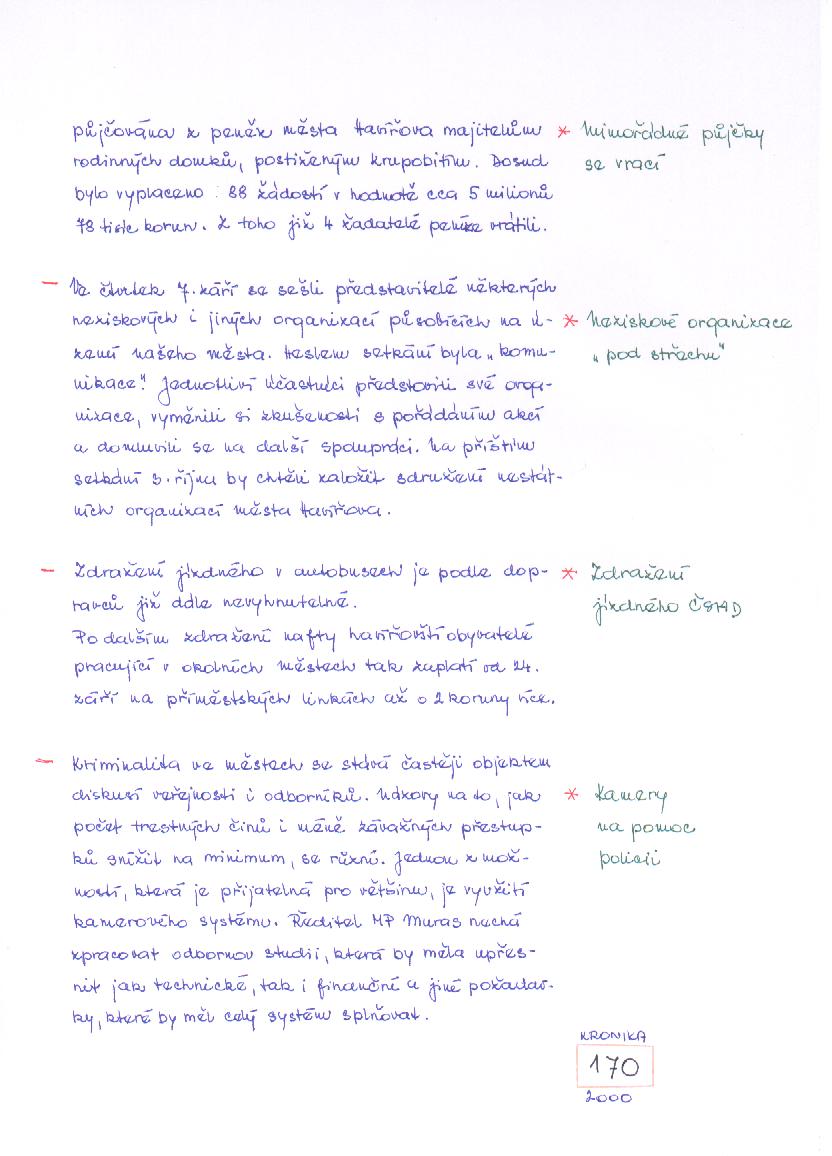 půjčována z peněz města Havířova majitelům
rodinných domků, postiženým krupobitím. Dosud
bylo vyplaceno : 88 žádostí v hodnotě cca 5 milionů
78 tisíc korun. Z toho již 4 žadatelé peníze vrátili.
* Mimořádné půjčky
se vrací
- Ve čtvrtek 7. září se sešli představitelé některých
neziskových i jiných organizací působících na ú-
zemí našeho města. Heslem setkání byla „komu-
nikace." Jednotliví účastníci představili své orga-
nizace, vyměnili si zkušenosti s pořádáním akcí
a domluvili se na další spolupráci. Na příštím
setkání 3. říjnu by chtěli založit sdružení nestát-
ních organizací města Havířova.
* Neziskové organizace
„pod střechu"
- Zdražení jízdného v autobusech je podle dop-
ravců již dále nevyhnutelné.
Po dalším zdražení nafty havířovští obyvatelé
pracující v okolních městech tak zaplatí od 24.
září na příměstských linkách až o 2 koruny více.
* Zdražení
jízdného ČSAD
- Kriminalita ve městech se stává častěji objektem
diskusí veřejnosti i odborníků. Názory na to, jak
počet trestných činů i méně závažných přestup-
ků snížit na minimum, se různí. Jednou z mož-
ností, která je přijatelná pro většinu, je využití
kamerového systému. Ředitel MP Muras nechá
zpracovat odbornou studii, která by měla upřes-
nit jak technické, tak i finanční a jiné požadav-
ky, které by měl celý systém splňovat.
* Kamery
na pomoc
policii
KRONIKA
170
2000